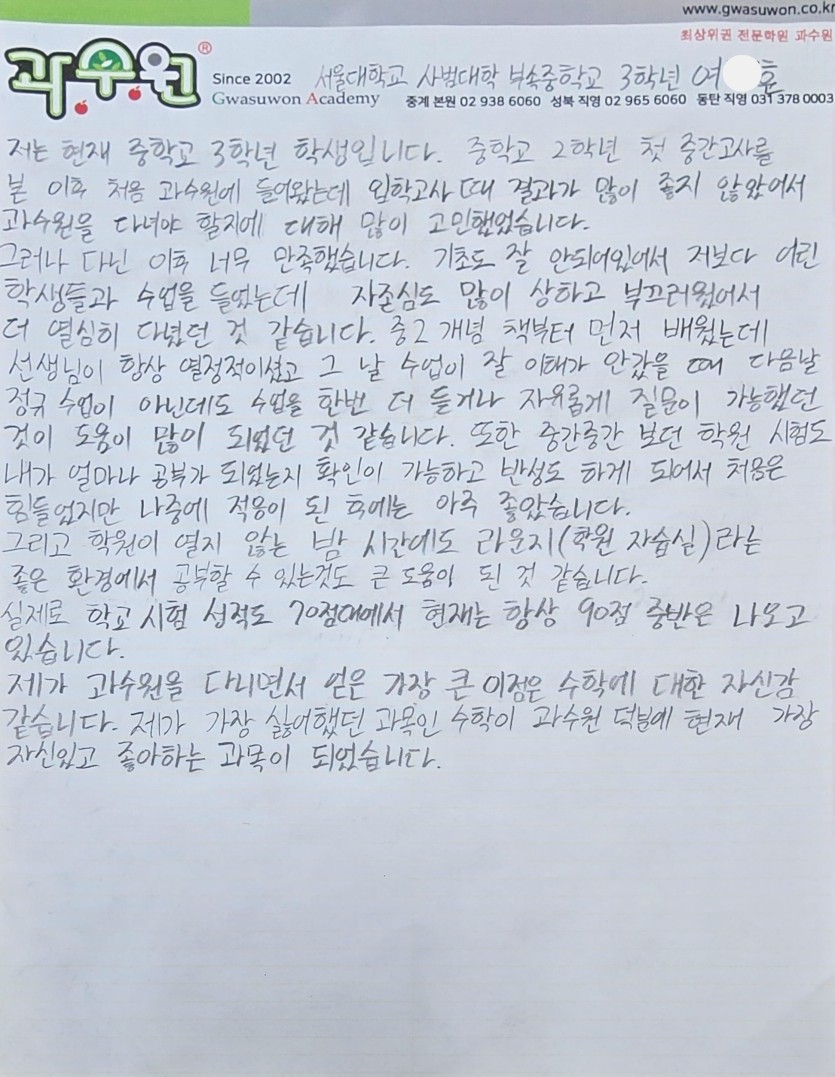 www.gwasuwon.co.kr
최상위권 전문학원 과수원
과수원®
Since 2002 서울대학교 사범대학 부속중학교 3학년 여 훈
Gwasuwon Academy 중계 본원 02 938 6060 성북 직영 02 965 6060 동탄 직영 031 378 0003
저는 현재 중학교 3학년 학생입니다. 중학교 2학년 첫 중간고사를
본 이후 처음 과수원에 들어왔는데 입학고사 때 결과가 많이 좋지 않았어서
과수원을 다녀야 할지에 대해 많이 고민했었습니다.
그러나 다닌 이후 너무 만족했습니다. 기초도 잘 안되어있어서 저보다 어린
학생들과 수업을 들었는데 자존심도 많이 상하고 부끄러웠어서
더 열심히 다녔던 것 같습니다. 중2 개념 책부터 먼저 배웠는데
선생님이 항상 열정적이셨고 그 날 수업이 잘 이해가 안갔을 때 다음날
정규 수업이 아닌데도 수업을 한번 더 듣거나 자유롭게 질문이 가능했던
것이 도움이 많이 되었던 것 같습니다. 또한 중간중간 보던 학원 시험도
내가 얼마나 공부가 되었는지 확인이 가능하고 반성도 하게 되어서 처음은
힘들었지만 나중에 적응이 된 후에는 아주 좋았습니다.
그리고 학원이 열지 않는 밤 시간에도 라운지(학원 자습실)라는
좋은 환경에서 공부할 수 있는것도 큰 도움이 된 것 같습니다.
실제로 학교 시험 성적도 70점대에서 현재는 항상 90점 중반은 나오고
있습니다.
제가 과수원을 다니면서 얻은 가장 큰 이점은 수학에 대한 자신감
같습니다. 제가 가장 싫어했던 과목인 수학이 과수원 덕분에 현재 가장
자신있고 좋아하는 과목이 되었습니다.